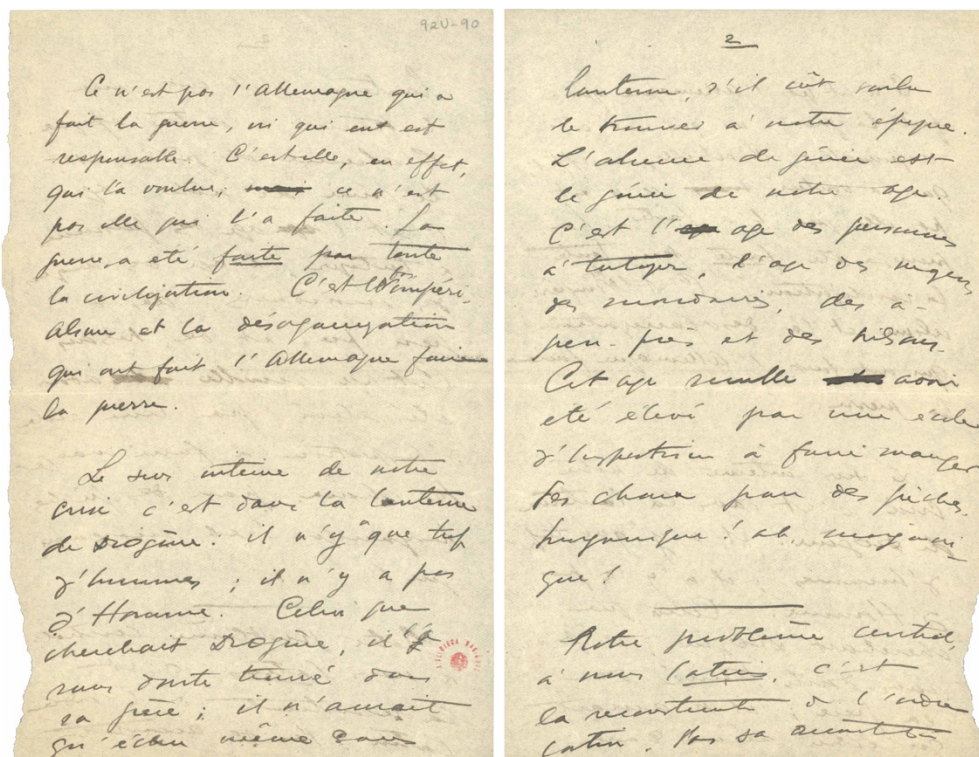 92U-90
Ce n'est pas l'Allemagne qui a
fait la guerre, ni qui en est
responsable. C'est elle, en effet,
qui l'a voulue, mais ce n'est
pas elle qui l'a faite. La
guerre a eté faite par toute
la civilization. C'est l'impéri-
alisme et la désorganization
qui ont fait l'Allemagne faire
la guerre.
Le sens interne de notre
crise c'est dans la lanterne
de Diogène: il n'y a que trop
d'hommes; il n'y a pas
d'Homme. Celui que
cherchait Diogène, il l'a
sans doute trouvé dans
sa grèce; il n'aurait
qu'échu même sans
2
lanterne, s'il eût voulu
le trouver à notre époque.
L'absence de génie est
le génie de notre age.
C'est l'age des personnes
à tutoyer, l'age des negres,
des mandarins, des à-
peu-pres et des
Cet age semble avoir
été élevé par une école
d'équitation à faire manger
des chevaux par des
! ah,
que!
Notre problème central,
à nous latins, c'est
la reconstruite de l'ordre
latin. Pas sa